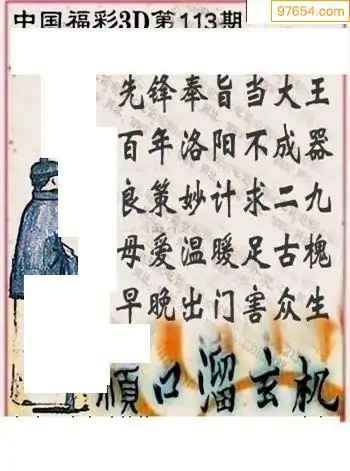 中国福彩3D第113期
97654.com
先锋奉旨当大王
百年洛阳不成器
良策妙计求二九
母爱温暖足古槐
早晚出门害众生
顺口溜玄机